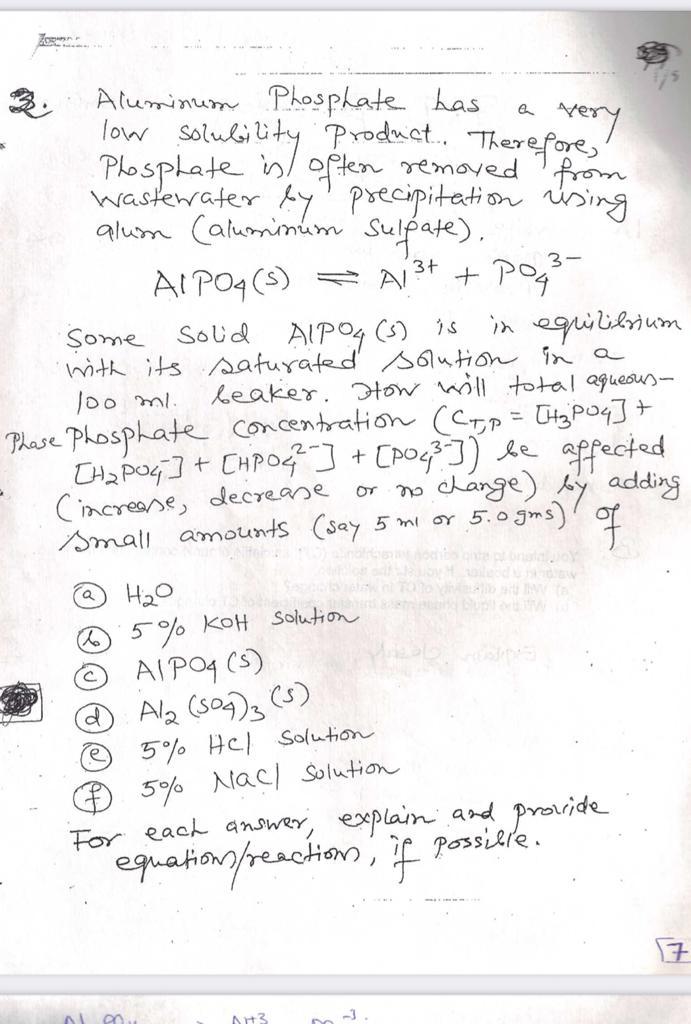 3. Aluminum Phosphate has a very
low solubility Product. Therefore,
Phosphate is often removed from
wastewater by precipitation using
alum (aluminum sulfate).
AlPO4(s) ⇌ Al³⁺ + PO₄³⁻
Some Solid AlPO4(s) is in equilibrium
with its saturated solution in a
100 ml. beaker. How will total aqueous-
Phase Phosphate concentration (C_T,P = [H3PO4] +
[H2PO4⁻] + [HPO4²⁻] + [PO4³⁻]) be affected
(increase, decrease or no change) by adding
small amounts (say 5 ml or 5.0 gms) of
(a) H2O
(b) 5% KOH solution
(c) AlPO4(s)
(d) Al2(SO4)3(s)
(e) 5% HCl solution
(f) 5% NaCl solution
For each answer, explain and provide
equations/reactions, if possible.
7